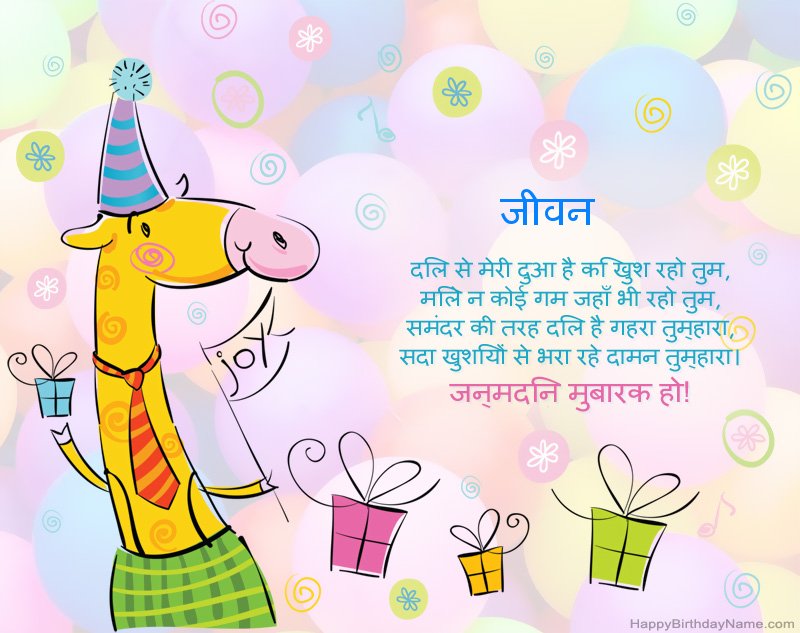 जीवन
दलि से मेरी दुआ है कि खुश रहो तुम,
मलिे न कोई गम जहाँ भी रहो तुम,
समंदर की तरह दलि है गहरा तुम्हारा,
सदा खुशयिों से भरा रहे दामन तुम्हारा।
जन्मदनि मुबारक हो!
joy
HappyBirthdayName.com